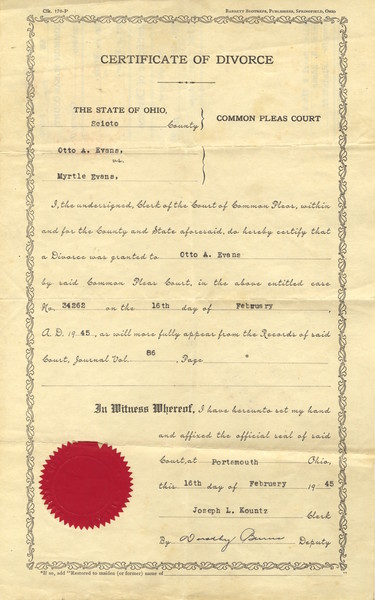 Clk. 170-P
BARRETT BROTHERS, PUBLISHERS, SPRINGFIELD, OHIO
CERTIFICATE OF DIVORCE
THE STATE OF OHIO,
Scioto County
COMMON PLEAS COURT
Otto A. Evans,
vs.
Myrtle Evans,
I, the undersigned, Clerk of the Court of Common Pleas, within
and for the County and State aforesaid, do hereby certify that
a Divorce was granted to Otto A. Evans
by said Common Pleas Court, in the above entitled case
No. 34262 on the 16th day of February,
A. D. 1945, as will more fully appear from the Records of said
Court, Journal Vol. 86, Page "
In Witness Whereof, I have hereunto set my hand
and affixed the official seal of said
Court, at Portsmouth Ohio,
this 16th day of February 1945
Joseph L. Kountz Clerk
By Dorothy Deputy
"If so, add "Restored to maiden (or former) name of "